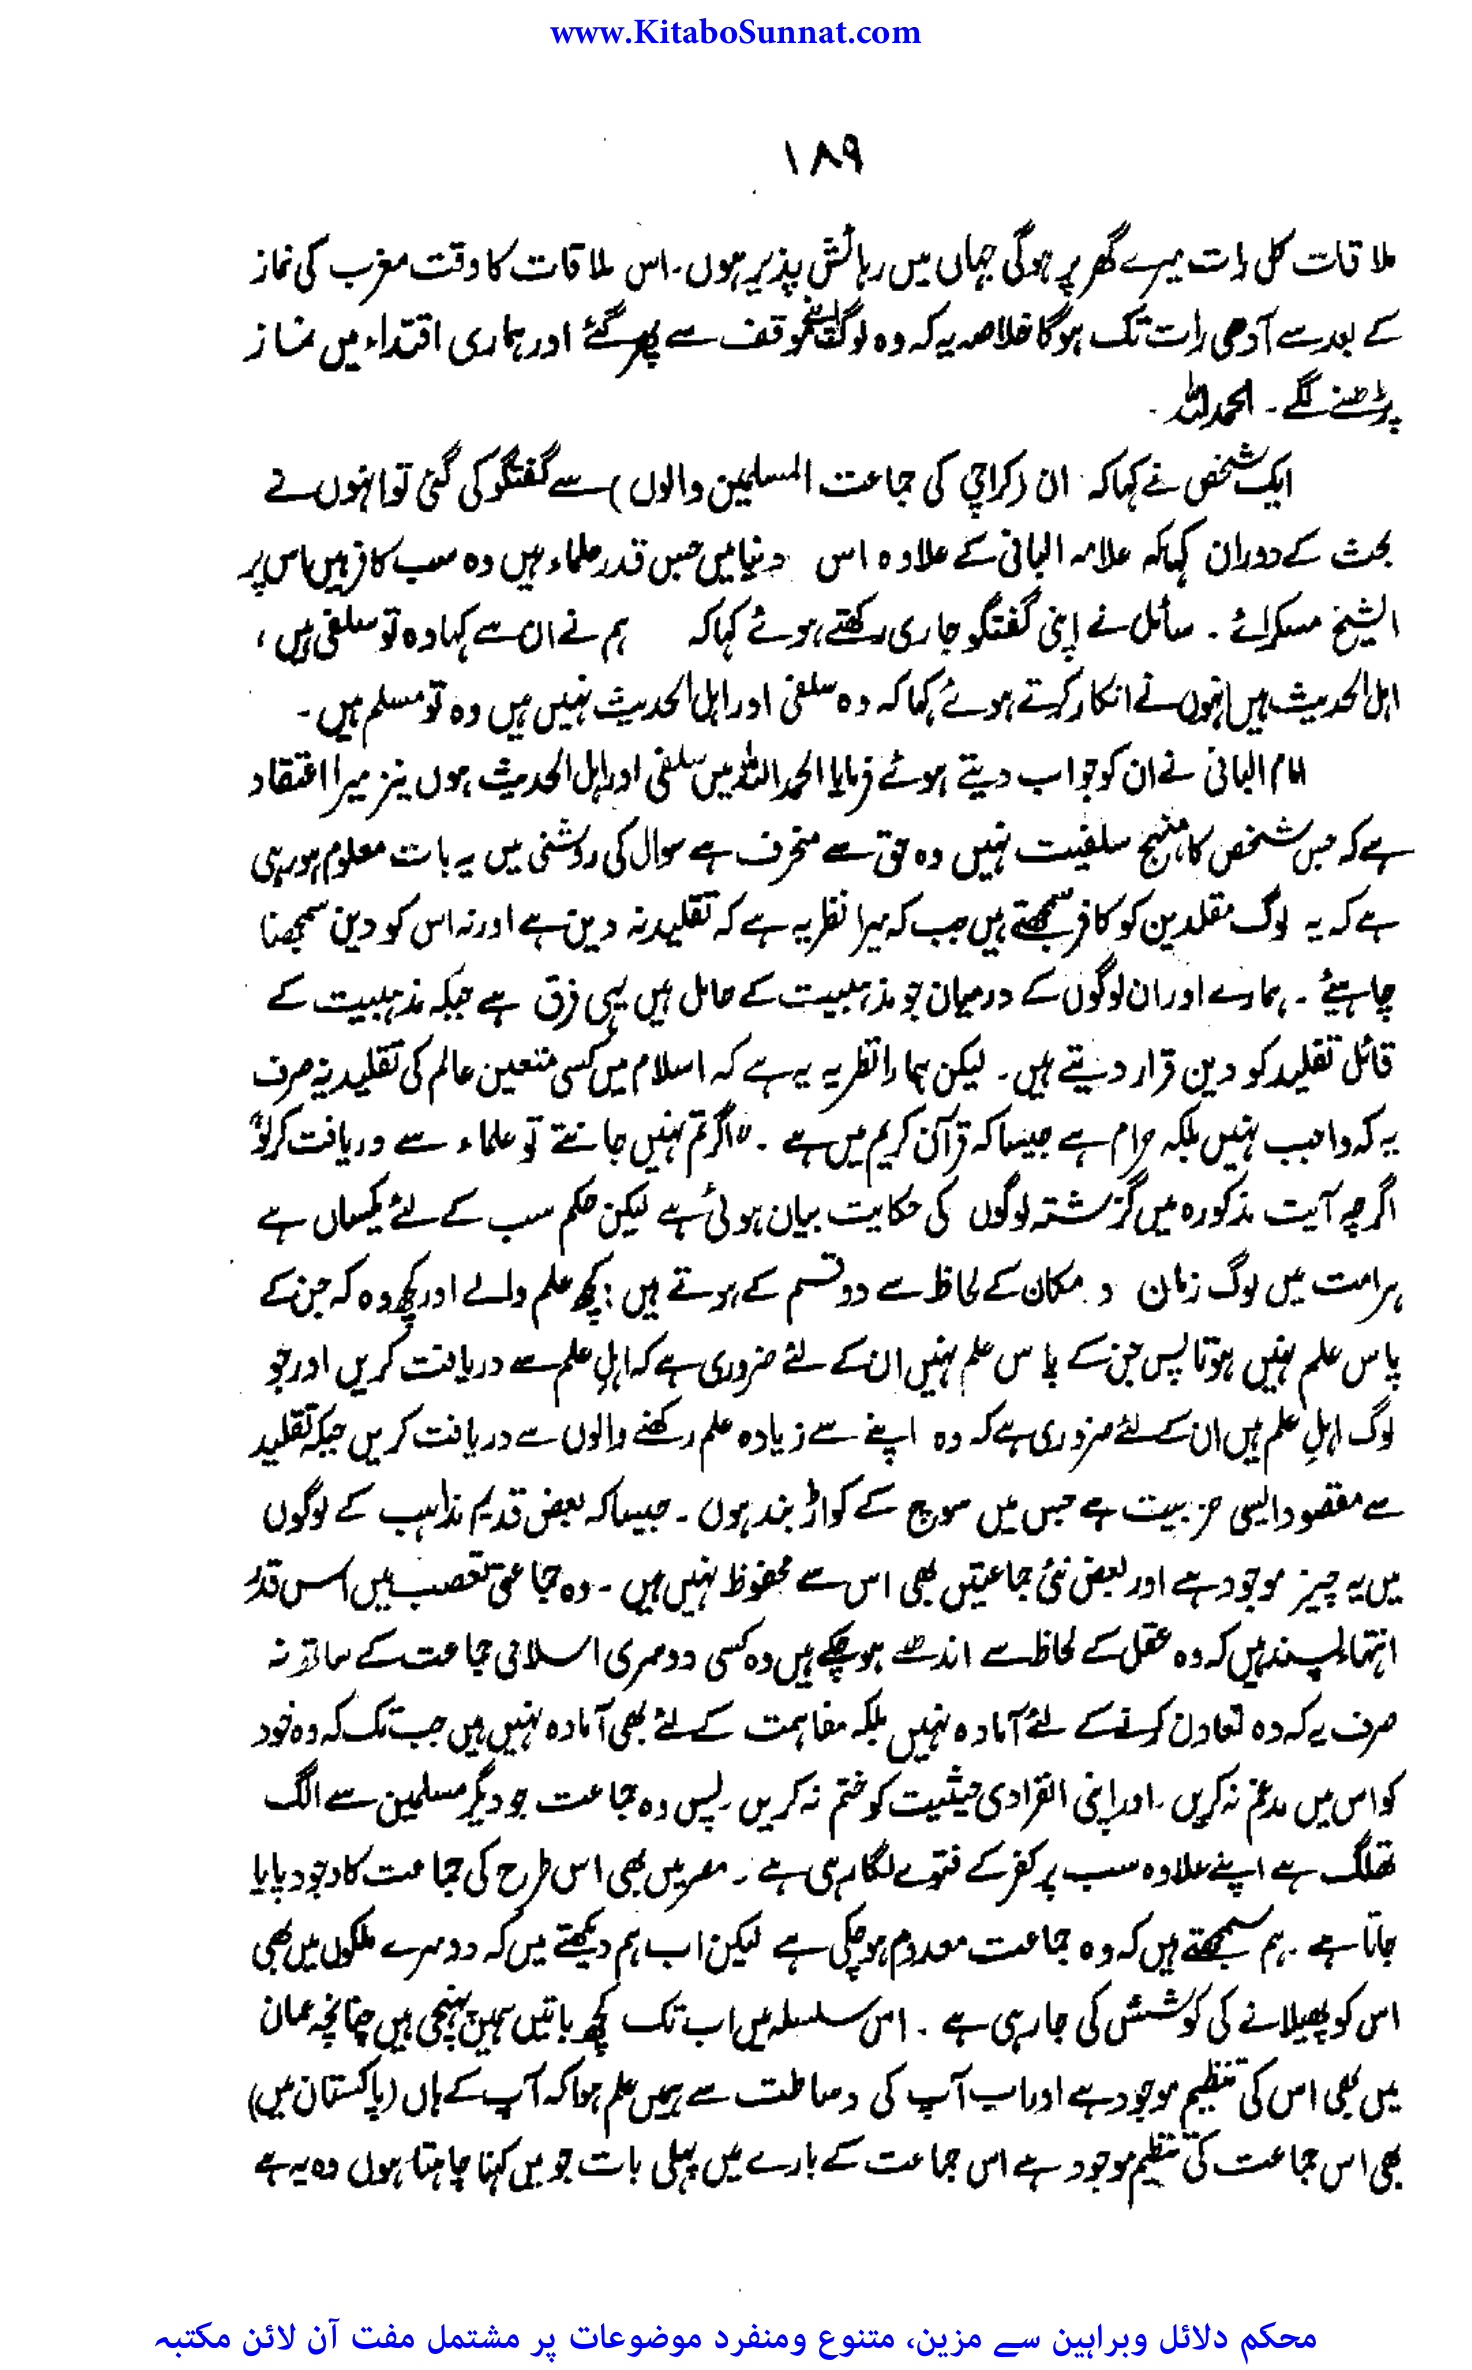 www.KitaboSunnat.com
۱۸۹
ملاقات کل رات میرے گھر پر ہوگی جہاں میں رہائش پذیر ہوں۔ اس ملاقات کا وقت مغرب کی نماز
کے بعد سے آدھی رات تک ہوگا خلاصہ یہ کہ وہ لوگ اپنے موقف سے پھر گئے اور ہماری اقتداء میں نماز
پڑھنے لگے۔ الحمد للہ۔
ایک شخص نے کہا کہ ان (کراچی کی جماعت المسلمین والوں) سے گفتگو کی گئی تو انہوں نے
بحث کے دوران کہا کہ علامہ البانی کے علاوہ اس دنیا میں جس قدر علماء ہیں وہ سب کافر ہیں اس پر
الشیخ مسکرائے۔ سائل نے اپنی گفتگو جاری رکھتے ہوئے کہا کہ ہم نے ان سے کہا وہ تو سلفی ہیں،
اہل الحدیث ہیں انہوں نے انکار کرتے ہوئے کہا کہ وہ سلفی اور اہل الحدیث نہیں ہیں وہ تو مسلم ہیں۔
امام البانی نے ان کو جواب دیتے ہوئے فرمایا الحمد للہ میں سلفی اور اہل الحدیث ہوں نیز میرا اعتقاد
ہے کہ جس شخص کا منہج سلفیت نہیں وہ حق سے منحرف ہے سوال کی روشنی میں یہ بات معلوم ہو رہی
ہے کہ یہ لوگ مقلدین کو کافر سمجھتے ہیں جب کہ میرا نظریہ ہے کہ تقلید نہ دین ہے اور نہ اس کو دین سمجھنا
چاہیئے۔ ہمارے اور ان لوگوں کے درمیان جو مذہبیت کے حامل ہیں یہی فرق ہے جبکہ مذہبیت کے
قائل تقلید کو دین قرار دیتے ہیں۔ لیکن ہمارا نظریہ یہ ہے کہ اسلام میں کسی متعین عالم کی تقلید نہ صرف
یہ کہ واجب نہیں بلکہ حرام ہے جیسا کہ قرآن کریم میں ہے۔ "اگر تم نہیں جانتے تو علماء سے دریافت کرلو"
اگرچہ آیت مذکورہ میں گزشتہ لوگوں کی حکایت بیان ہوئی ہے لیکن حکم سب کے لئے یکساں ہے
ہر امت میں لوگ زمان و مکان کے لحاظ سے دو قسم کے ہوتے ہیں: کچھ علم والے اور کچھ وہ کہ جن کے
پاس علم نہیں ہوتا پس جن کے پاس علم نہیں ان کے لئے ضروری ہے کہ اہلِ علم سے دریافت کریں اور جو
لوگ اہلِ علم ہیں ان کے لئے ضروری ہے کہ وہ اپنے سے زیادہ علم رکھنے والوں سے دریافت کریں جبکہ تقلید
سے مقصود ایسی حزبیت ہے جس میں سوچ کے کواڑ بند ہوں۔ جیسا کہ بعض قدیم مذاہب کے لوگوں
میں یہ چیز موجود ہے اور بعض نئی جماعتیں بھی اس سے محفوظ نہیں ہیں۔ وہ جماعتی تعصب میں اس قدر
انتہاء پسند ہیں کہ وہ عقل کے لحاظ سے اندھے ہوچکے ہیں وہ کسی دوسری اسلامی جماعت کے ساتھ نہ
صرف یہ کہ وہ تعاون کرنے کے لئے آمادہ نہیں بلکہ مفاہمت کے لئے بھی آمادہ نہیں ہیں جب تک کہ وہ خود
کو اس میں مدغم نہ کریں۔ اور اپنی انفرادی حیثیت کو ختم نہ کریں۔ پس وہ جماعت جو دیگر مسلمین سے الگ
تھلگ ہے اپنے علاوہ سب پر کفر کے فتوے لگا رہی ہے۔ مصر میں بھی اس طرح کی جماعت کا وجود پایا
جاتا ہے۔ ہم سمجھتے ہیں کہ وہ جماعت معدوم ہوچکی ہے لیکن اب ہم دیکھتے ہیں کہ دوسرے ملکوں میں بھی
اس کو پھیلانے کی کوشش کی جا رہی ہے۔ اس سلسلہ میں اب تک کچھ باتیں ہمیں پہنچی ہیں چنانچہ عمان
میں بھی اس کی تنظیم موجود ہے اور اب آپ کی وساطت سے ہمیں علم ہوا کہ آپ کے ہاں (پاکستان میں)
بھی اس جماعت کی تنظیم موجود ہے اس جماعت کے بارے میں پہلی بات جو میں کہنا چاہتا ہوں وہ یہ ہے
محکم دلائل وبراہین سے مزین، متنوع ومنفرد موضوعات پر مشتمل مفت آن لائن مکتبہ